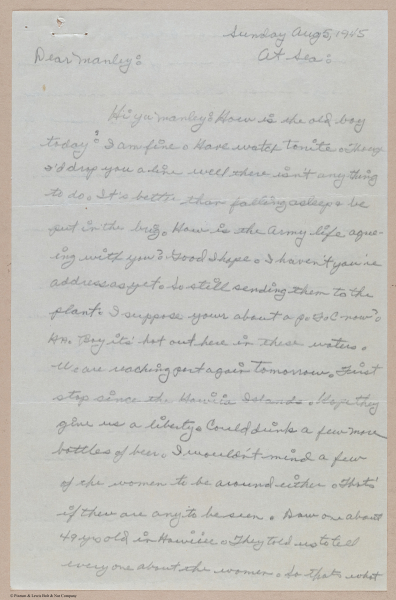 Sunday Aug 5, 1945
At Sea:
Dear Manley:
Hi ya Manley? How is the old boy
today? I am fine. Have watch tonite
I'd drop you a line well there isn't any thing
to do. Its better than falling asleep & be
put in the brig. How is the Army life
ing with you? Good I hope. I haven't you're
address as yet. So still sending them to the
plant. I suppose your about a now?
Hm. Boy its' hot out here in these waters.
We are reaching port again tomorrow. First
stop since the Islands. they
give us a liberty. Could drink a few more
bottles of beer. I wouldn't mind a few
of the women to be around either. Thats'
if there are any to be seen. Saw one about
49 yrs old in. They told us to tell
every one about the women. So thats what
© Present & Lewis/Dole & Nat Company